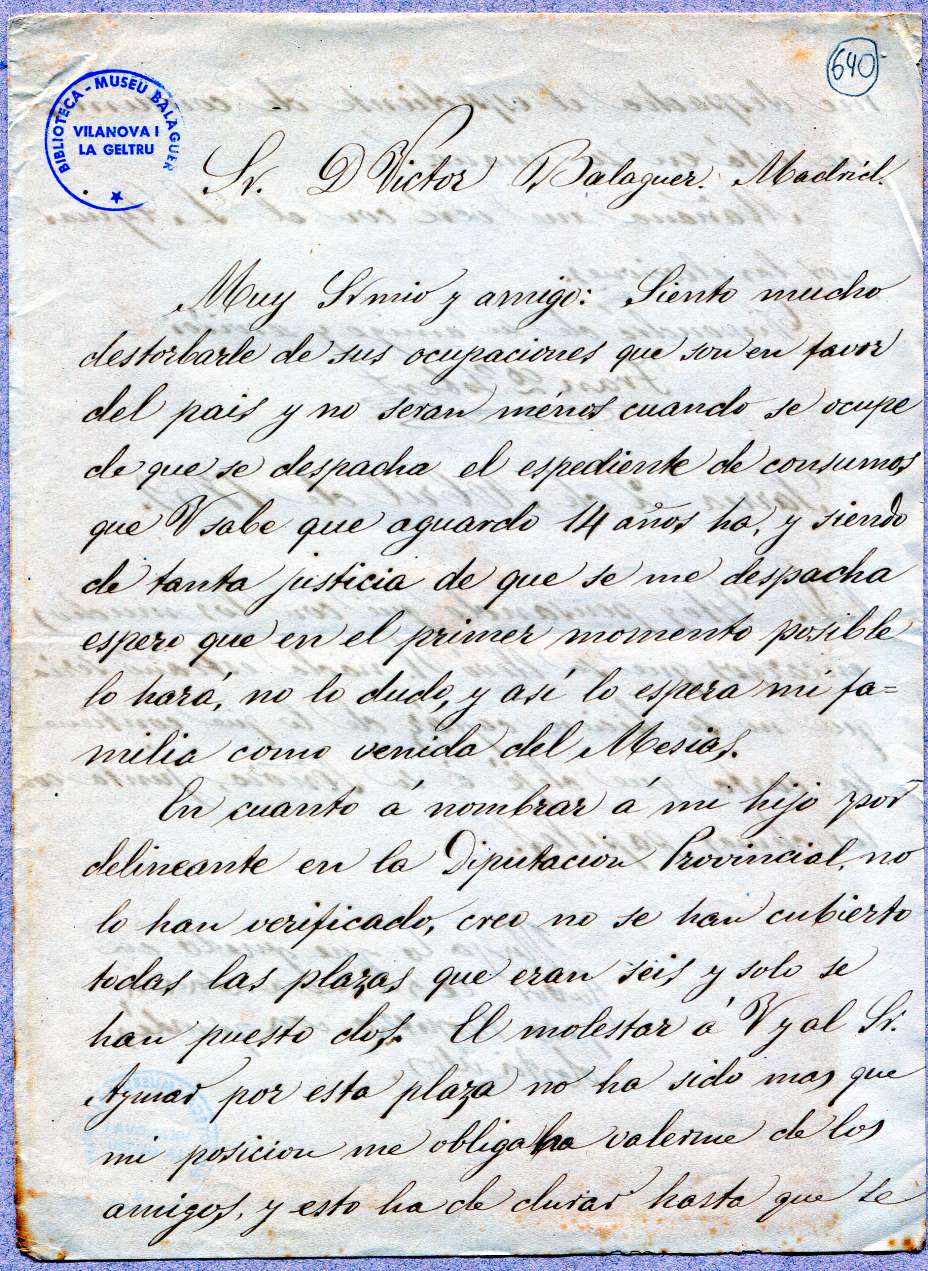 640
BIBLIOTECA - MUSEU BALAGUER
VILANOVA I
LA GELTRU
Sr. D Victor Balaguer. Madrid.
Muy Sr mio y amigo: Siento mucho
destorbarle de sus ocupaciones que son en favor
del pais y no seran ménos cuando se ocupe
de que se despacha el espediente de consumos
que V sabe que aguardo 14 años ha, y siendo
de tanta justicia de que se me despacha
espero que en el primer momento posible
lo hará, no lo dudo, y así lo espera mi fa=
milia como venida del Mesias.
En cuanto á nombrar á mi hijo por
delineante en la Diputacion Provincial, no
lo han verificado, creo no se han cubierto
todas las plazas que eran seis y solo se
han puesto dos. El molestar á V y al Sr.
Aymar por esta plaza no ha sido mas que
mi posicion me obliga ha valerme de los
amigos, y esto ha de durar hasta que se